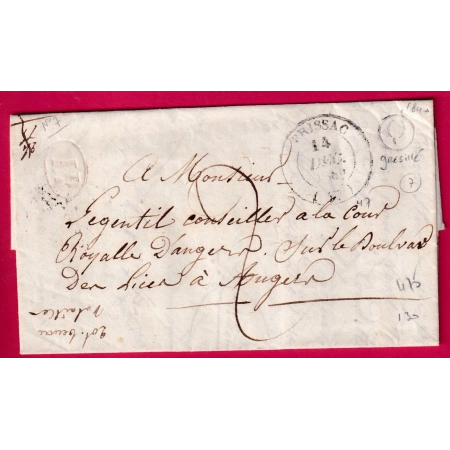 BRISSAC
14
DEC.
47
gresillé
7
A Monsieur
Legentil conseiller a la Cour
Royalle D'angers, Sur le Boulvard
Des lices à Angers
2
475
130